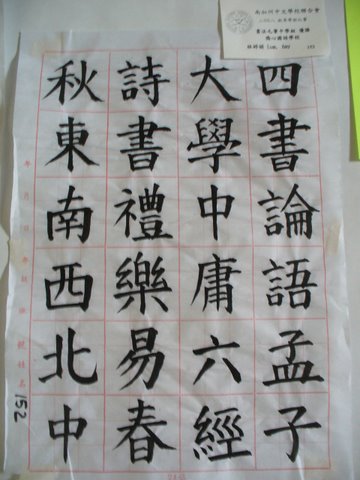 四書論語孟子
大學中庸六經
詩書禮樂易春
秋東南西北中
152
南加州中文學校聯合會